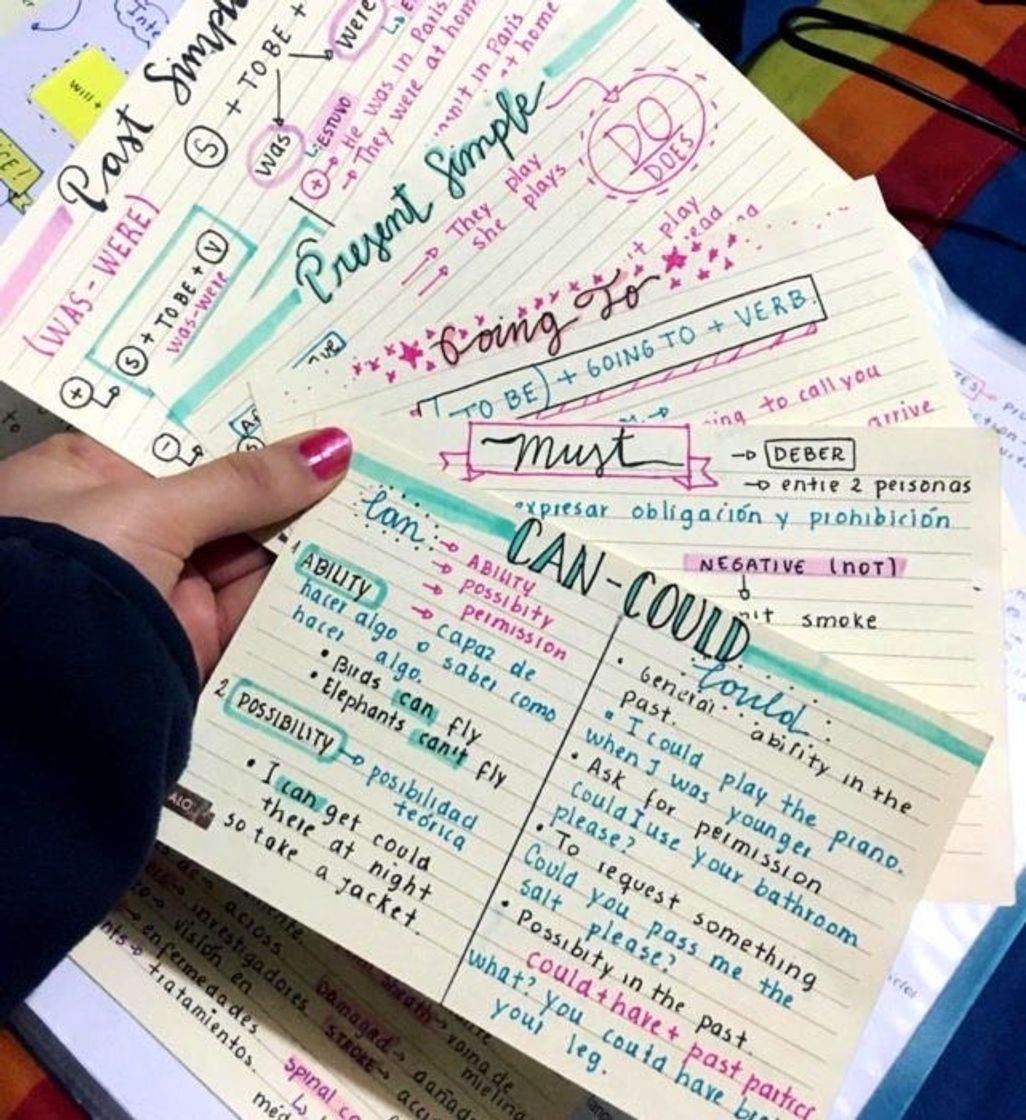 Past Simple
(WAS-WERE)
S + TO BE +
was
were
↳ ESTUVO
+ → He was in Paris
→ They were at home
in Paris
home
+
S + TO BE + V
was-were
-
will +
Present Simple
→ They play
→ she plays
DO
DOES
play
Going To
TO BE) + GOING TO + VERB.
to call you
arrive
Must
→ DEBER
→ entre 2 personas
expresar obligación y prohibición
NEGATIVE (NOT)
smoke
CAN-COULD
Can
→ ABILITY
→ possibity
→ permission
ABILITY
capaz de
hacer algo o saber como
hacer algo.
• Birds can fly
• Elephants can't fly
2 POSSIBILITY
→ posibilidad
teórica
• I can get could
there at night
so take a jacket.
Could
• General ability in the
past.
• I could play the piano.
when I was younger
• Ask for permission
Could I use your bathroom
please?
• To request something
Could you pass me the
salt please?
• Possibity in the past.
could + have + past
what? you could have
your leg.
across
investigadores
visión en
enfermedades
tratamientos.
Damaged →
STROKE →
vaina de
mielina
spinal